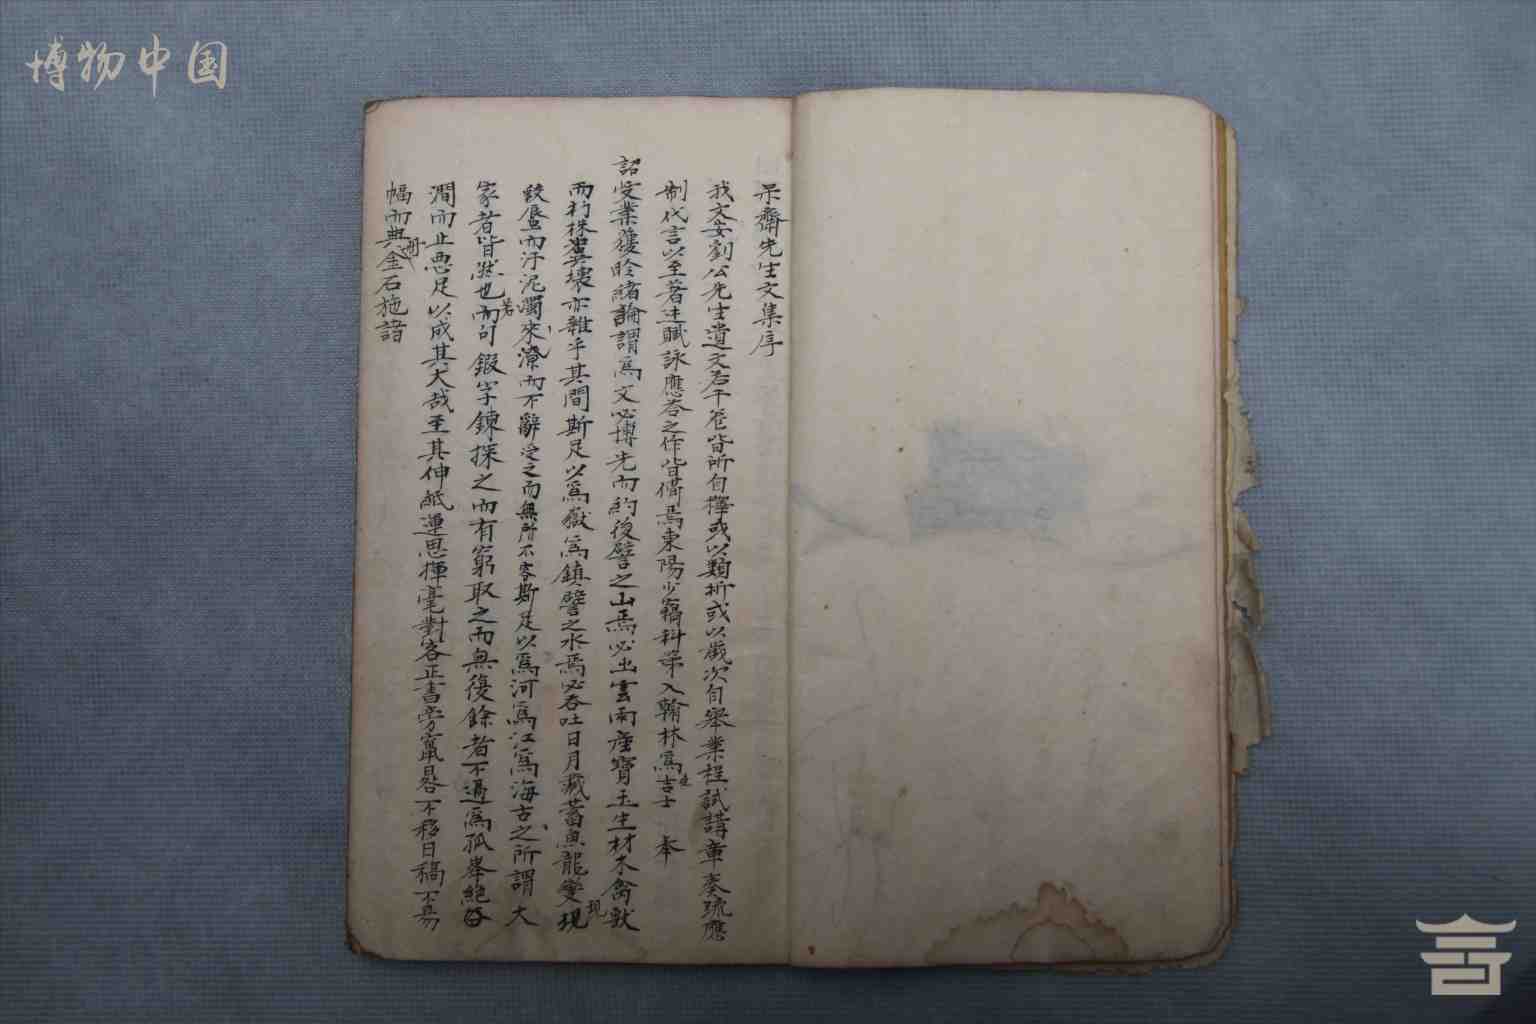 博物中国
呆齋先生文集序
我文安劉公先生遺文若干卷皆所自擇或以類析或以歲次自舉業程試講章奏疏應
制代言以至著述賦詠應荅之作皆備焉東陽少竊科第入翰林爲吉士 奉
詔受業獲聆緒論謂爲文必博先而約後譬之山焉必出雲雨產寶玉生材木禽獸
而朽株糞壤亦雜乎其間斯足以爲嶽爲鎮譬之水焉必吞吐日月藏蓄魚龍變現
蛟蜃而汙泥濁來潦而不辭受之而無所不容斯足以爲河爲江爲海古之所謂大
家者皆然也而句鍜字鍊探之而有窮取之而無復餘者不過爲孤峯絕
澗而止惡足以成其大哉至其伸紙運思揮毫對客正書旁竄晷不移日稿不易
幅而典金石施諸